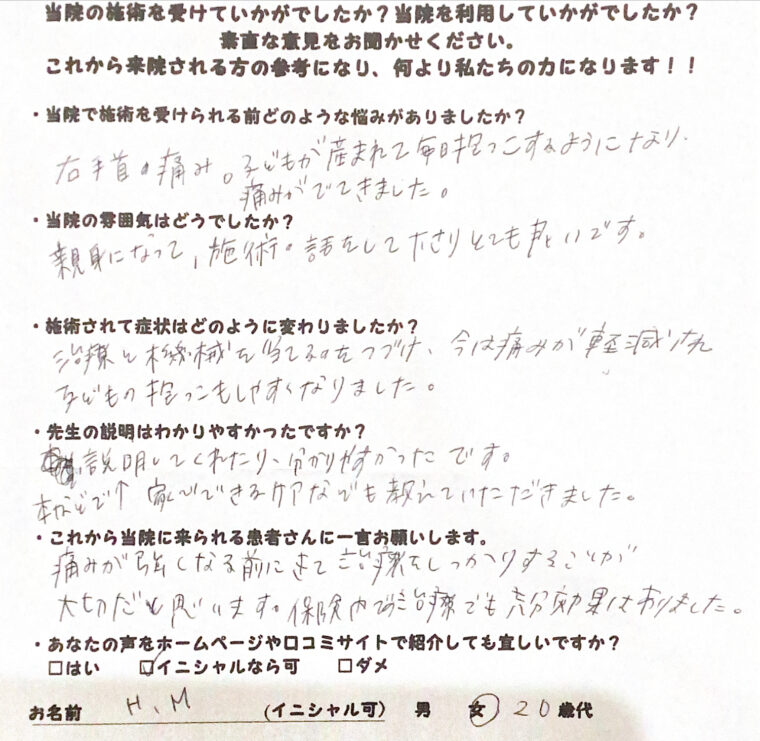 当院の施術を受けていかがでしたか？当院を利用していかがでしたか？
素直な意見をお聞かせください。
これから来院される方の参考になり、何より私たちの力になります！！
・当院で施術を受けられる前どのような悩みがありましたか？
右手首の痛み。子どもが産まれて毎日抱っこするようになり、
痛みがでてきました。
・当院の雰囲気はどうでしたか？
親身になって、施術。話をして下さりとても良いです。
・施術されて症状はどのように変わりましたか？
治療と機械を当てるのをつづけ、今は痛みが軽減され
子どもの抱っこもしやすくなりました。
・先生の説明はわかりやすかったですか？
説明してくれたり、分かりやすかったです。
本などで↑ 家でできるケアなども教えていただきました。
・これから当院に来られる患者さんに一言お願いします。
痛みが強くなる前にきて治療をしっかりすることが
大切だと思います。保険内の治療でも充分効果はありました。
・あなたの声をホームページや口コミサイトで紹介しても宜しいですか？
□はい ☑イニシャルなら可 □ダメ
お名前 H、M (イニシャル可) 男 女 20歳代